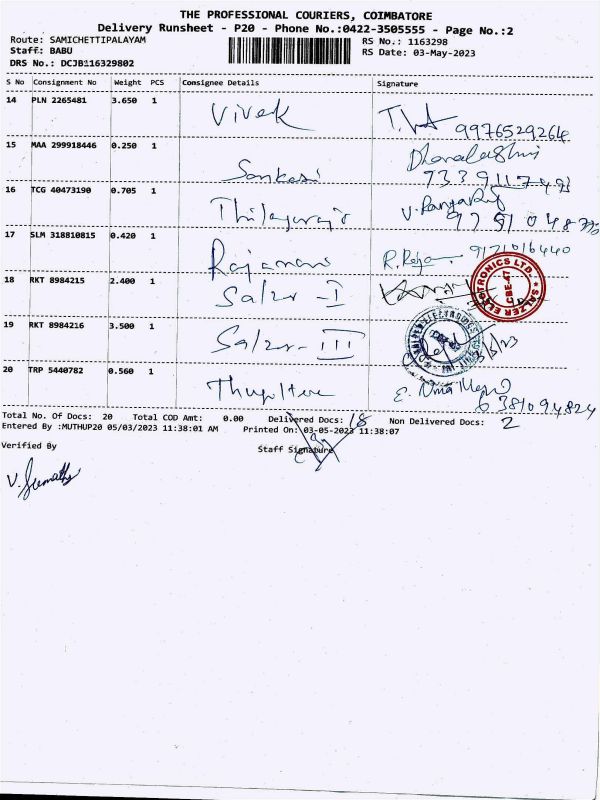 THE PROFESSIONAL COURIERS, COIMBATORE
Delivery Runsheet - P20 - Phone No.:0422-3505555 - Page No.:2
Route: SAMICHETTIPALAYAM RS No.: 1163298
Staff: BABU RS Date: 03-May-2023
DRS No.: DCJB116329802
S No Consignment No Weight PCS Consignee Details Signature
14 PLN 2265481 3.650 1 Vivek
9976529264
15 MAA 299918446 0.250 1
16 TCG 40473190 0.705 1 Thilagaraj
17 SLM 318810815 0.420 1 9171016440
18 RKT 8984215 2.400 1 Salzer - I
SALZER ELECTRONICS LTD. CBE-47
19 RKT 8984216 3.500 1 Salzer - III
20 TRP 5440782 0.560 1
6381094824
Total No. Of Docs: 20 Total COD Amt: 0.00 Delivered Docs: 18 Non Delivered Docs: 2
Entered By :MUTHUP20 05/03/2023 11:38:01 AM Printed On: 03-05-2023 11:38:07
Verified By Staff Signature
V. Sumathi